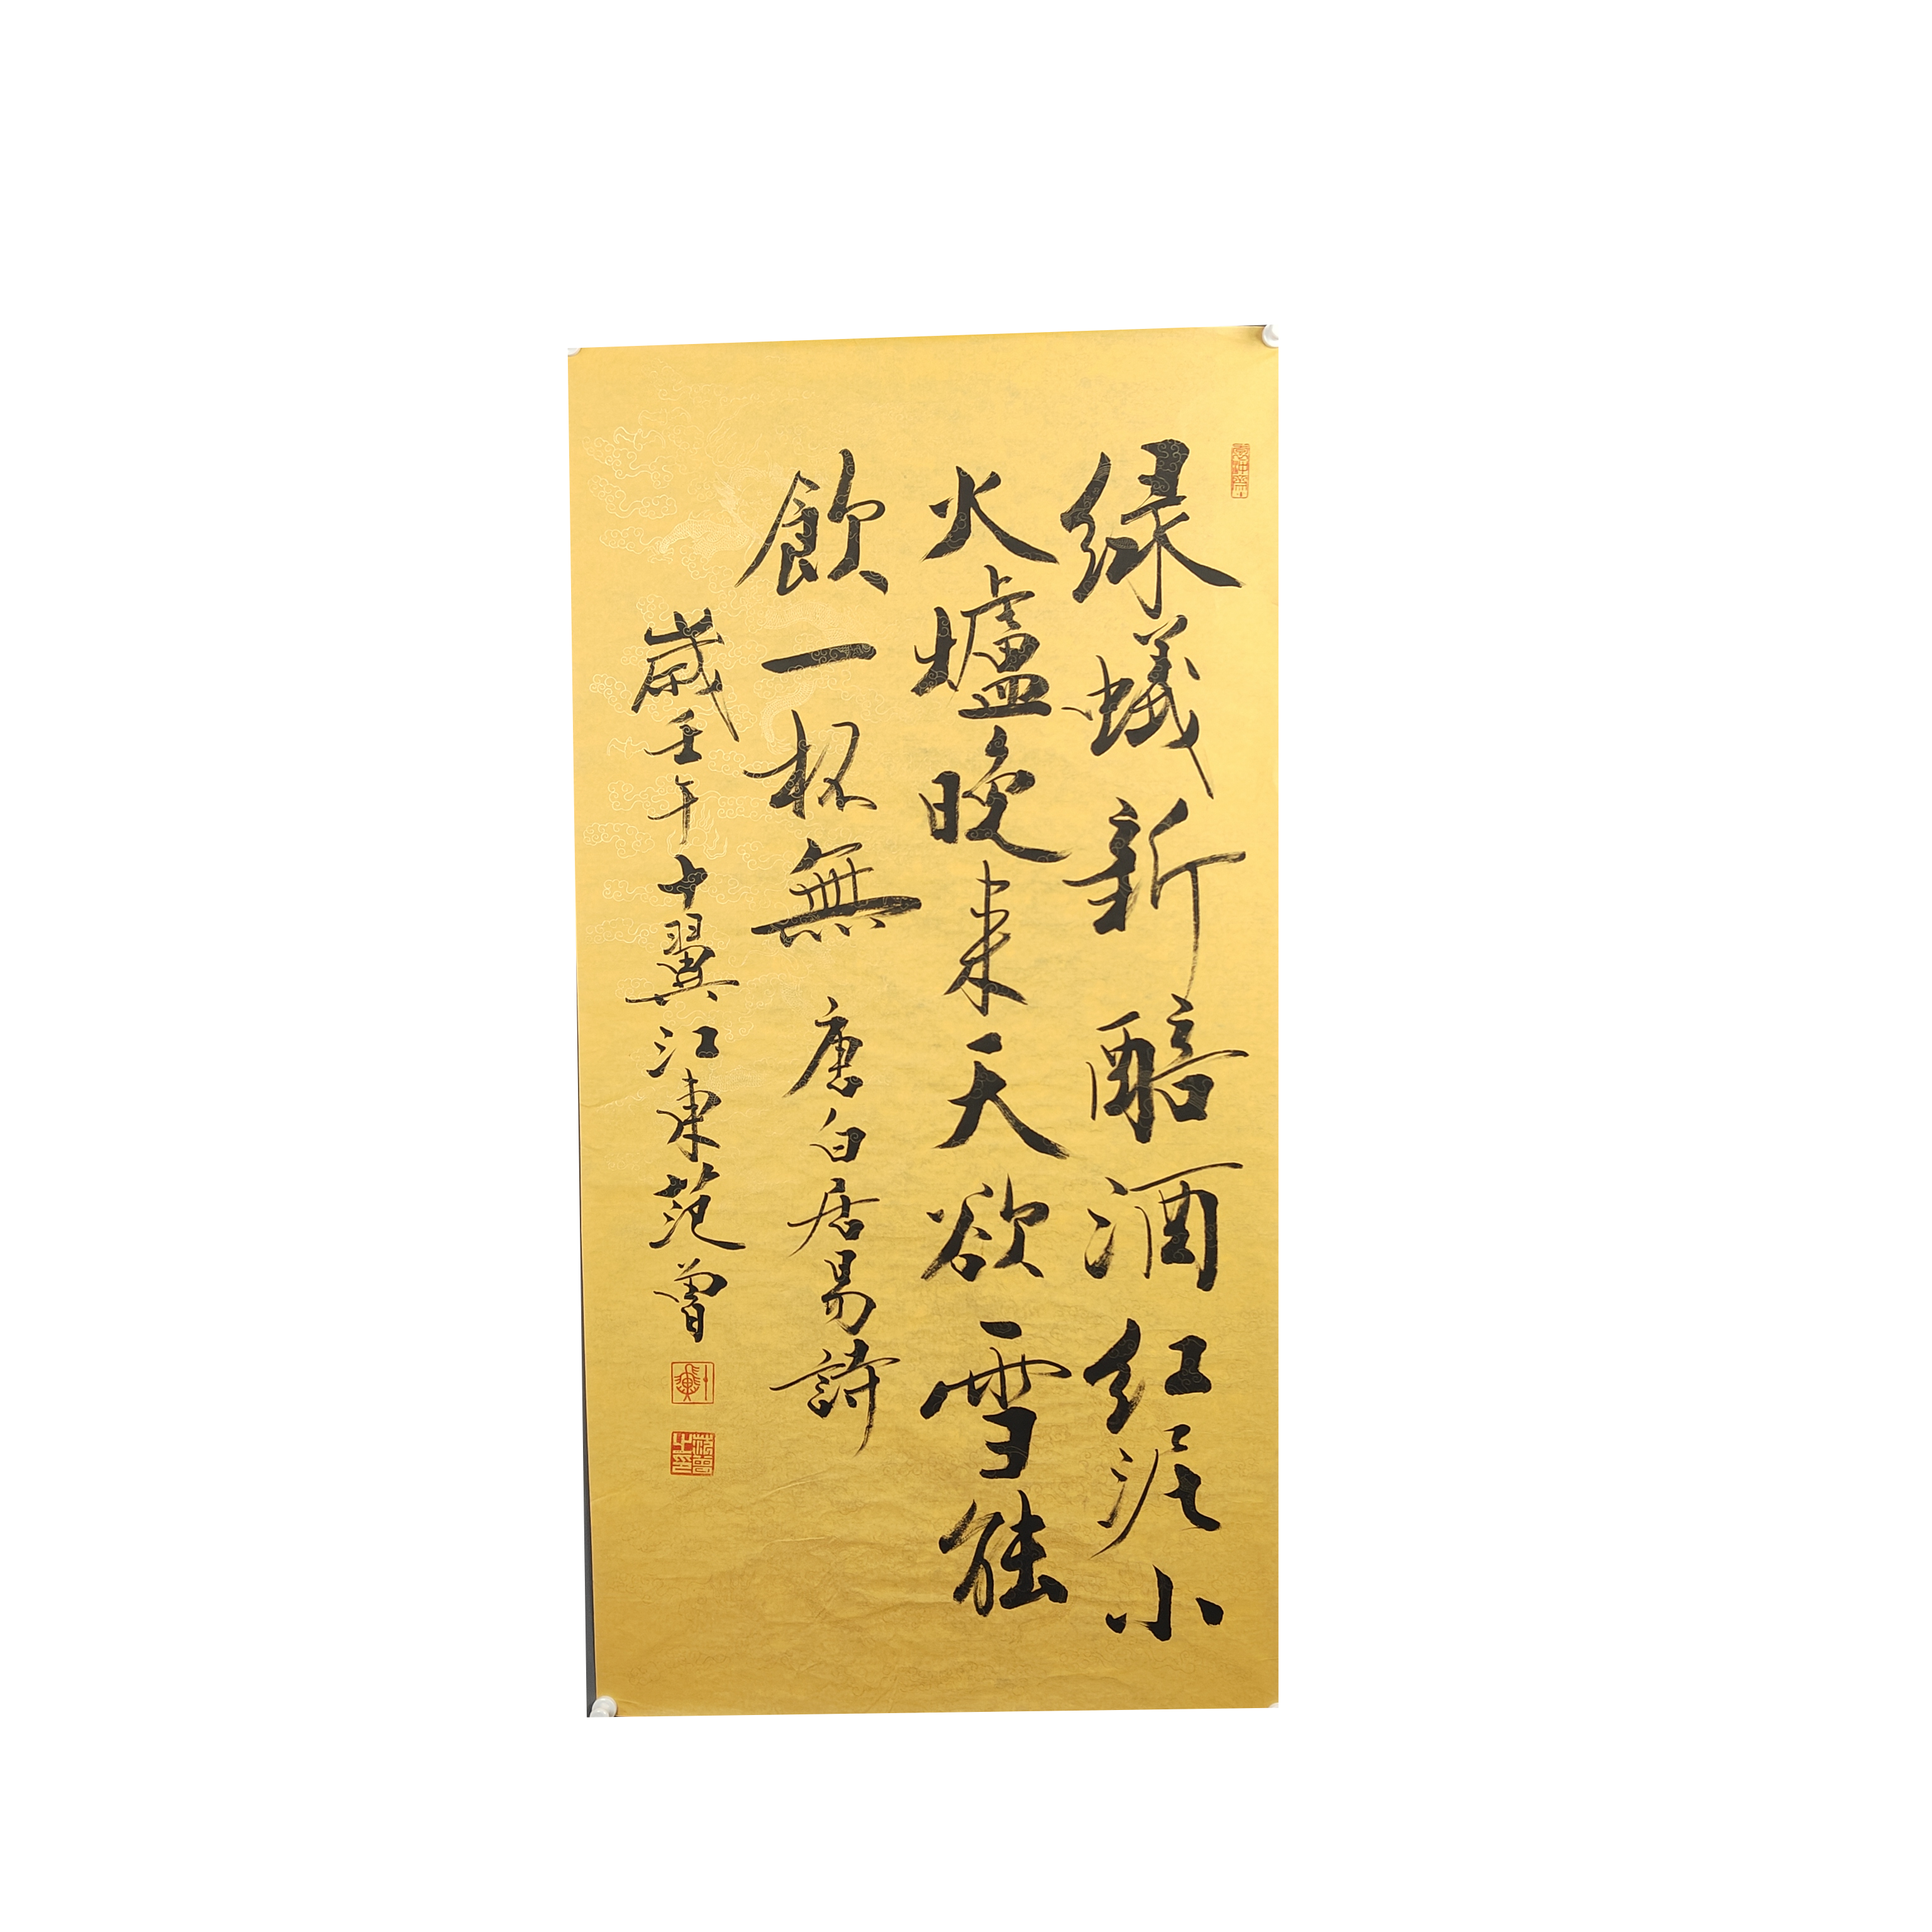 绿蟻新醅酒红泥小
火爐晚来天欲雪能
飲一杯無 唐白居易詩
歲壬午十翼江東范曾
范曾之印